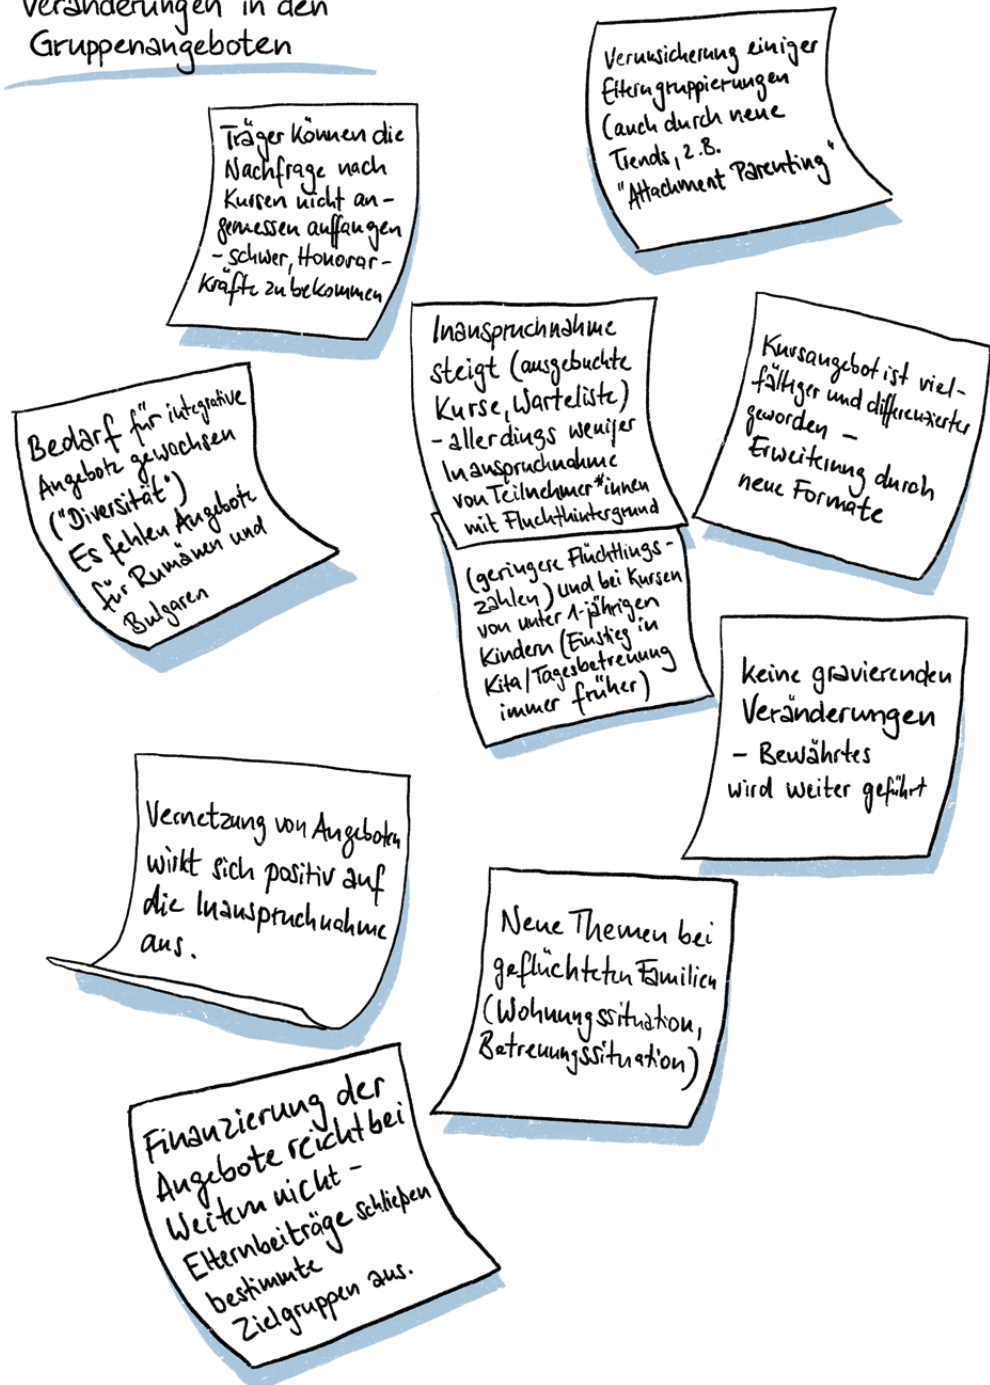 Veränderungen in den
Gruppenangeboten
Träger können die
Nachfrage nach
Kursen nicht an-
gemessen auffangen
- schwer, Honorar-
kräfte zu bekommen
Verunsicherung einiger
Elterngruppierungen
(auch durch neue
Trends, z.B.
"Attachment Parenting"
Inanspruchnahme
steigt (ausgebuchte
Kurse, Warteliste)
- allerdings weniger
Inanspruchnahme
von Teilnehmer*innen
mit Fluchthintergrund
(geringere Flüchtlings-
zahlen) und bei Kursen
von unter 1-jährigen
Kindern (Einstieg in
Kita/Tagesbetreuung
immer früher)
Kursangebot ist viel-
fältiger und differenzierter
geworden -
Erweiterung durch
neue Formate
Bedarf für integrative
Angebote gewachsen
("Diversität")
Es fehlen Angebote
für Rumänen und
Bulgaren
keine gravierenden
Veränderungen
- Bewährtes
wird weiter geführt
Vernetzung von Angeboten
wirkt sich positiv auf
die Inanspruchnahme
aus.
Neue Themen bei
geflüchteten Familien
(Wohnungssituation,
Betreuungssituation)
Finanzierung der
Angebote reicht bei
Weitem nicht -
Elternbeiträge schließen
bestimmte
Zielgruppen aus.